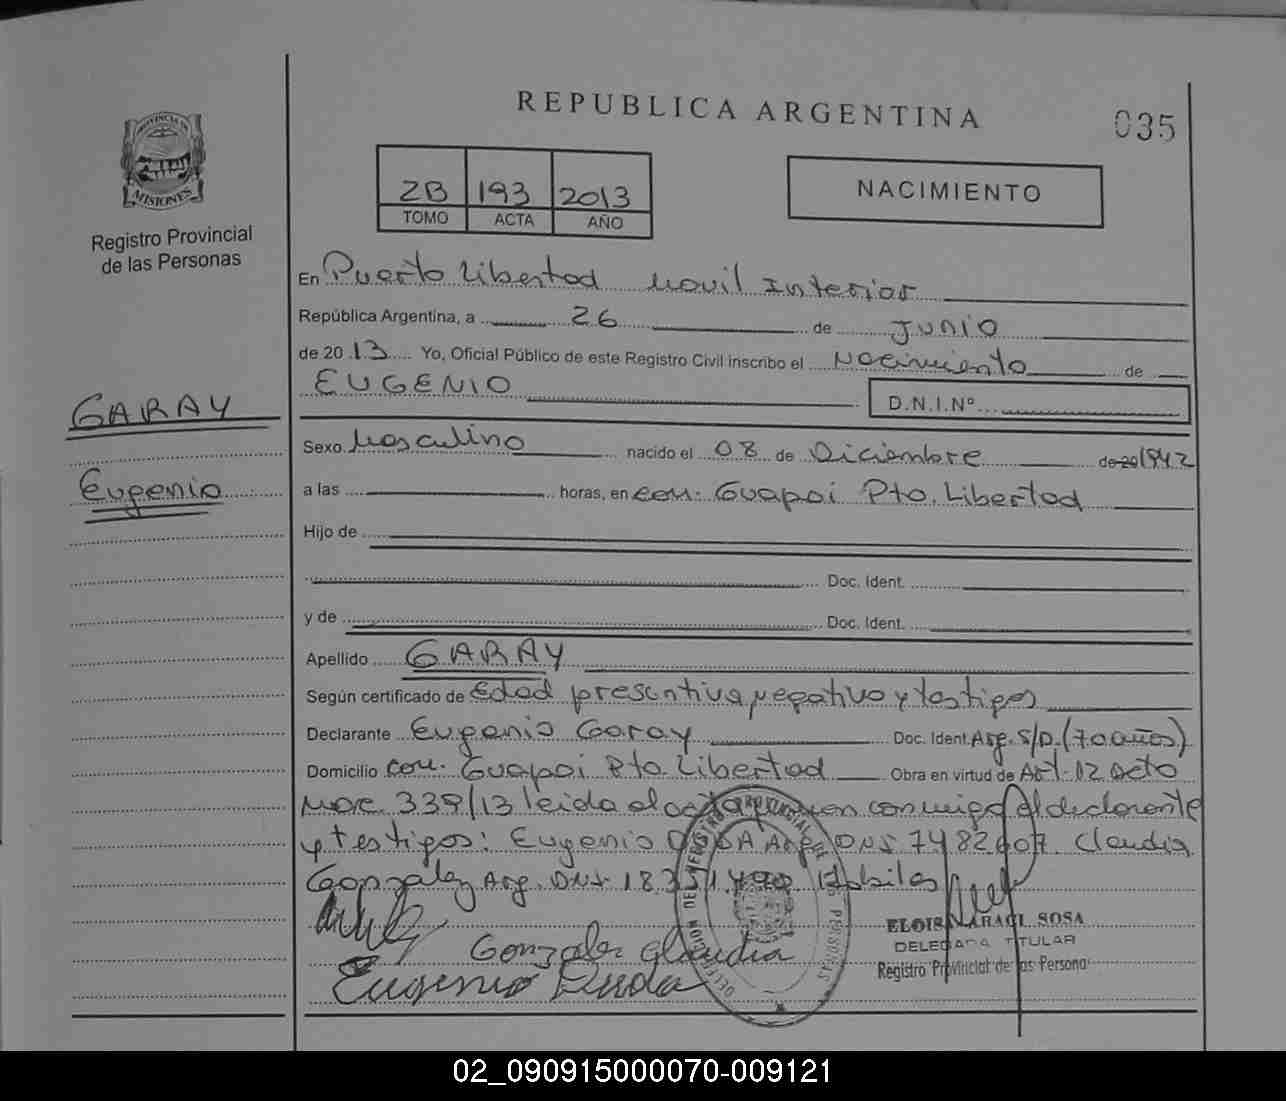 REPUBLICA ARGENTINA
035
PROVINCIA DE
MISIONES
Registro Provincial
de las Personas
2B 193 2013
TOMO ACTA AÑO
NACIMIENTO
En Puerto Libertad Movil Interior
República Argentina, a 26 de Junio
de 2013 Yo, Oficial Público de este Registro Civil inscribo el Nacimiento de
EUGENIO D.N.I.Nº
GARAY
Eugenio
Sexo Masculino nacido el 08 de Diciembre de 20 1942
a las horas, en com. Guapoi Pto. Libertad
Hijo de
Doc. Ident.
y de Doc. Ident.
Apellido GARAY
Según certificado de Edad presuntiva, negativo y testigos
Declarante Eugenio Garay Doc. Ident. Arg. S/D. (70 años)
Domicilio com. Guapoi Pto. Libertad Obra en virtud de Art. 12 Dcto
339/13 leida el acta conmigo el declarante
y testigos: Eugenio Arg. DNI 7482607. Claudia
Gonzalez Arg. DNI Habiles
Gonzalez Claudia
Eugenio
SOSA
DELEGADA TITULAR
Registro Provincial de las Personas
02_090915000070-009121